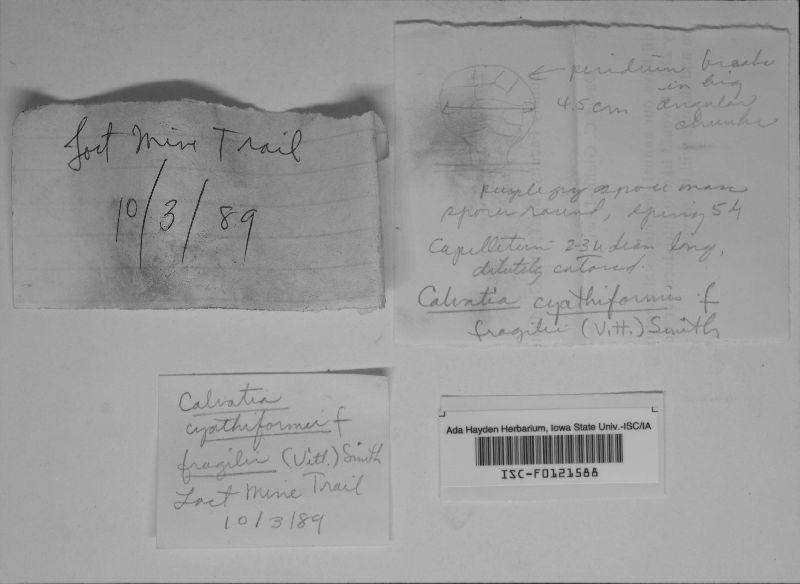 Lost Mine Trail
10/3/89
← peridium breaks
in big
4.5cm angular
chunks
purple gry spore mass
spores round, spiny 5 µ
Capillitium 2-3µ diam long,
dilutely colored.
Calvatia cyathiformis f
fragilis (Vitt.) Smith
Calvatia
cyathiformis f
fragilis (Vitt.) Smith
Lost Mine Trail
10/3/89
Ada Hayden Herbarium, Iowa State Univ.-ISC/IA
ISC-F0121588